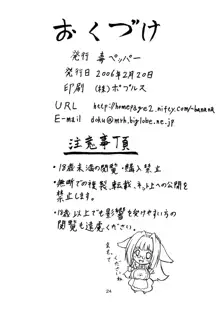 おくづけ
発行 毒ペッパー
発行日 2006年2月20日
印刷 (株)ポプルス
URL http://homepage2.nifty.com/~banana
E-mail doku@mvh.biglobe.ne.jp
注意事項
・18歳未満の閲覧・購入禁止
・無断での複製、転載、ネット上への公開を
禁止します。
・18歳以上でも影響を受けやすい方の
閲覧も遠慮ください。
24